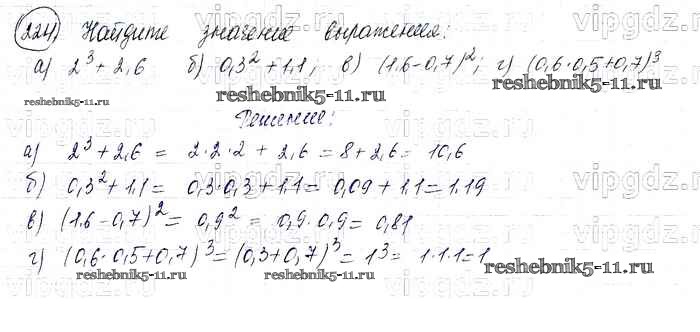 224) Найдите значения выражения:
а) 2³ + 2,6 б) 0,3² + 1,1; в) (1.6 - 0,7)²; г) (0,6 · 0,5 + 0,7)³
reshebnik5-11.ru reshebnik5-11.ru reshebnik5-11.ru
Решение:
а) 2³ + 2,6 = 2 · 2 · 2 + 2,6 = 8 + 2,6 = 10,6
б) 0,3² + 1,1 = 0,3 · 0,3 + 1.1 = 0,09 + 1.1 = 1.19
в) (1.6 - 0,7)² = 0,9² = 0,9 · 0,9 = 0,81
г) (0,6 · 0,5 + 0,7)³ = (0,3 + 0,7)³ = 1³ = 1·1·1 = 1
reshebnik5-11.ru reshebnik5-11.ru reshebnik5-11.ru